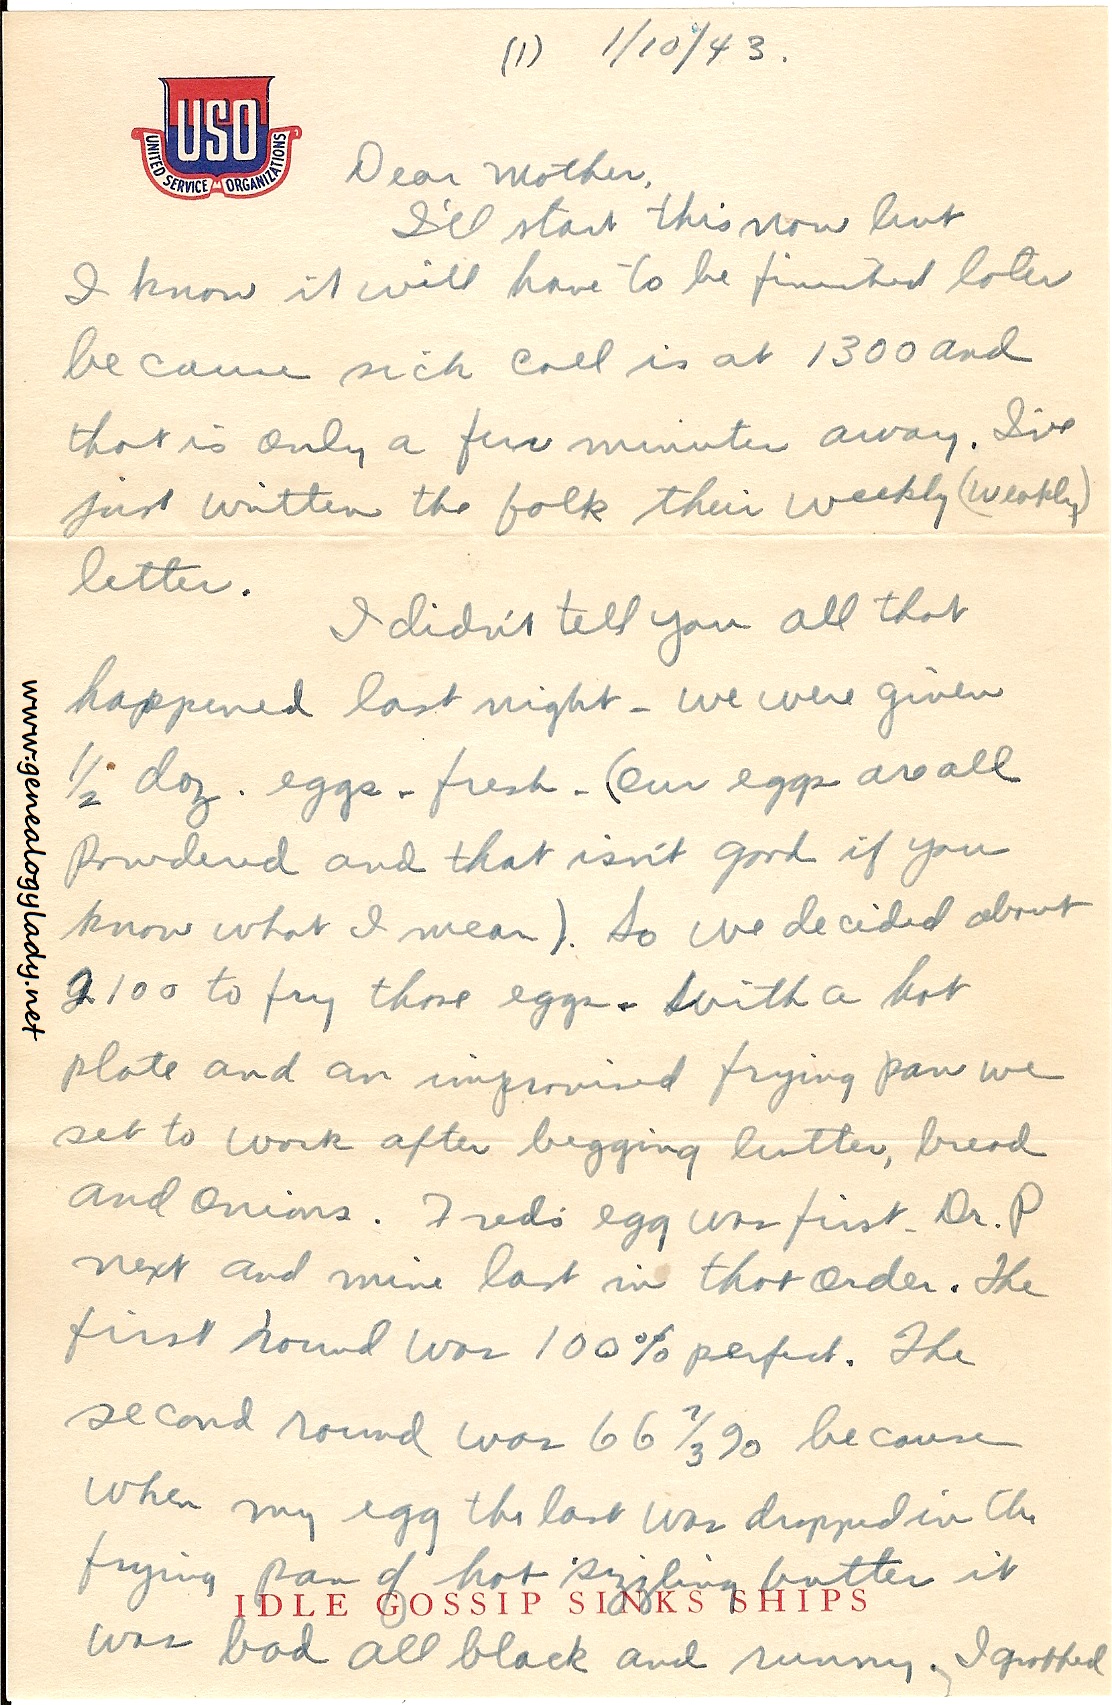 (1) 1/10/43.
USO
UNITED SERVICE ORGANIZATIONS
Dear Mother,
I'll start this now but
I know it will have to be finished later
because sick call is at 1300 and
that is only a few minutes away. I've
just written the folk their weekly (weakly)
letter.
I didn't tell you all that
happened last night - we were given
1/2 doz. eggs - fresh - (our eggs are all
powdered and that isn't good if you
know what I mean). So we decided about
2100 to fry those eggs. With a hot
plate and an improvised frying pan we
set to work after begging butter, bread
and onions. Fred's egg was first - Dr. P
next and mine last in that order. The
first round was 100% perfect. The
second round was 66 2/3 % because
when my egg the last was dropped in the
frying pan of hot sizzling butter it
IDLE GOSSIP SINKS SHIPS
was bad all black and runny. I
www.genealogylady.net